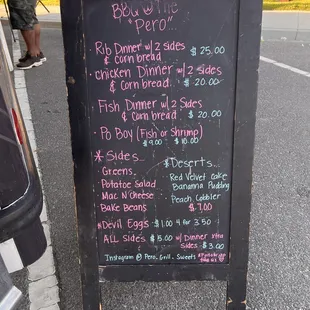 BBQ @ the
"Pero"...
Rib Dinner w/ 2 sides
& corn bread $25.00
Chicken Dinner w/ 2 sides
& Corn bread $20.00
Fish Dinner w/ 2 sides
& Corn bread $20.00
Po Boy (Fish or Shrimp)
$9.00 $10.00
* Sides...
Greens
Potatoe Salad
Mac N Cheese
Bake Beans
* Deserts...
Red Velvet Cake
Bananna Pudding
Peach Cobbler
$7.00
*Devil Eggs $1.00 4 for 3.50
ALL Sides $5.00 w/ Dinner xtra
Sides $3.00
Instagram @ Pero. Grill. Sweets